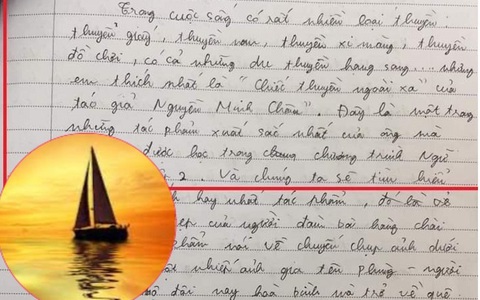 Trong cuộc sống có rất nhiều loại thuyền
thuyền giấy, thuyền nan, thuyền xi măng, thuyền
đồ chơi, có cả những du thuyền hạng sang... nhưng
em thích nhất là "Chiếc thuyền ngoài xa" của
tác giả Nguyễn Minh Châu". Đây là một trong
những tác phẩm xuất sắc nhất của ông mà
được học trong chương trình Ngữ
2. Và chúng ta sẽ tìm hiểu
hay nhất tác phẩm, đó là vẻ
đẹp của người đàn bà hàng chài
phẩm nói về chuyện chụp ảnh dưới
nhiếp ảnh gia tên Phùng - người
bộ đội nay hoà bình và trở về quê